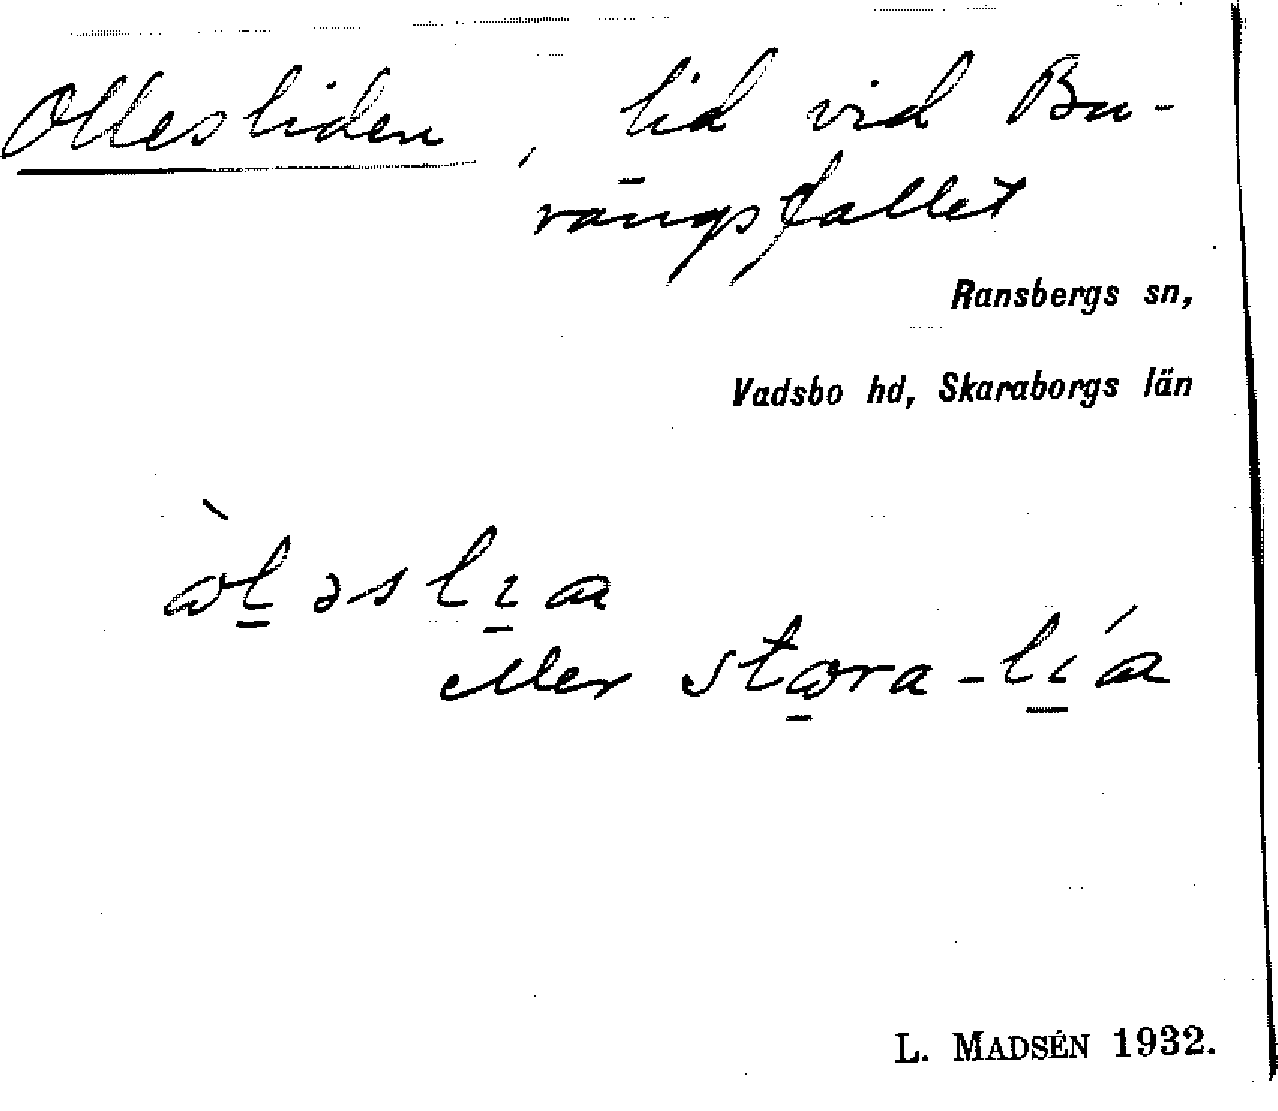 Ollesliden, lid vid Bu-
rängsfallet
Ransbergs sn,
Vadsbo hd, Skaraborgs län
ὼḻəslı̱a
eller stω̱ra-lı̱́a
L. MADSÉN 1932.